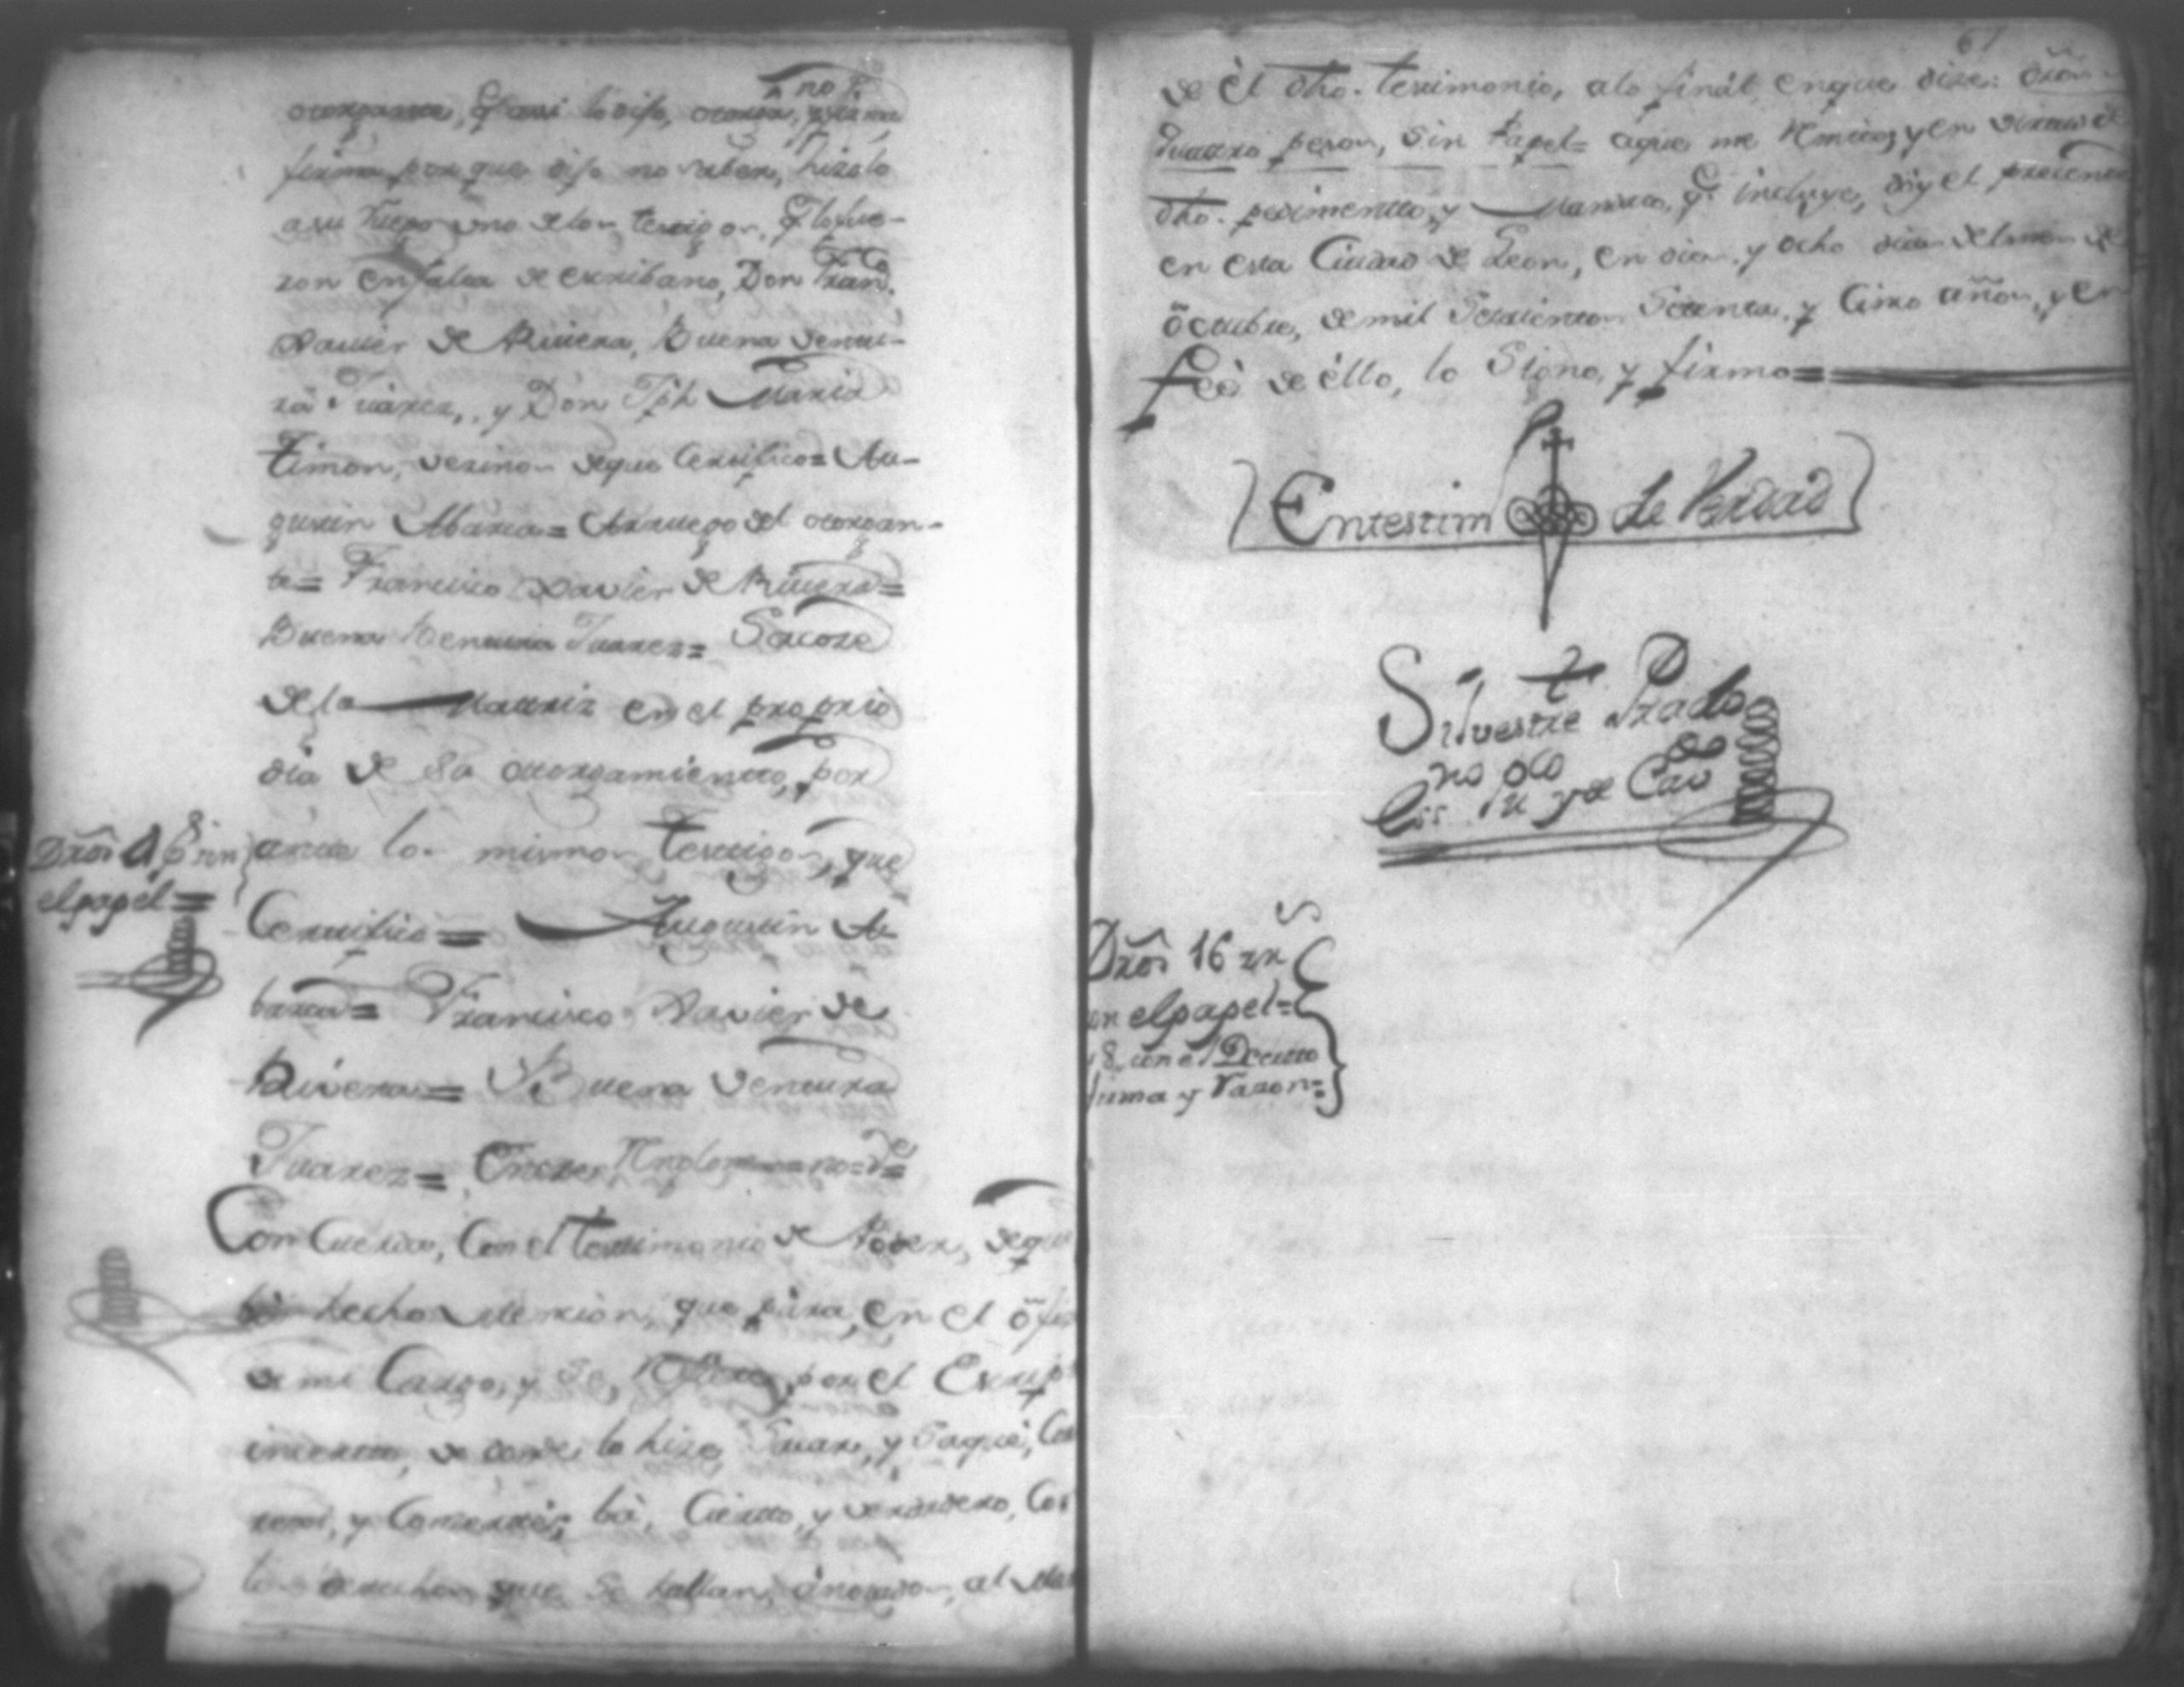 no
otorgante, q.e asi lo dijo, otorgó, y
firmo por que dijo no saber, hizolo
a su ruego uno de los testigos, q.e lo fue-
ron en falta de escribano, Don Fran.co
Xavier de Rivera, Buena Ventu-
ra Juarez, y Don Jph Maria
Timon, vezinos de que Certifico= Au-
gustin Abarca= A ruego del otorgan-
te= Francisco Xavier de Rivera=
Buena Ventura Juarez= Sacose
de la Matriz en el proprio
dia de su otorgamientto, por
Dros 4 p.s sin
el papel=
ante los mismos Testigos, que
Certifico= Augustin A-
barca= Francisco Xavier de
Rivera= Buena Ventura
Juarez= Entre Rengloneas= no=
Concuerda, Con el testimonio de Poder, de que
hecho mencion, que para, en el ofi
de mi Cargo, y Se, por el Escrip
incertto, de donde lo hize Sacar, y Saqué, Co
y Correxido bá, Ciertto, y verdadero, Co
los derechos que Se hallan, anotados, al Ma
61
de él dho. testimonio, alo finál, en que dize: Dros
Quattro pesos, Sin Papel= a que me Remito, y en virtud de
dho. pedimentto, y Mandato, q.e incluye, doy el presente
en esta Ciudad de Leon, en dies, y ocho dias del mes de
Octubre, de mil Setecientos Setenta, y Cinco años, y en
feé de éllo, lo Signo, y firmo=
En testim de Verdad
Silvestre Prado
Dros 16 rr.s
en el papel=
con el Decreto
suma y razon=